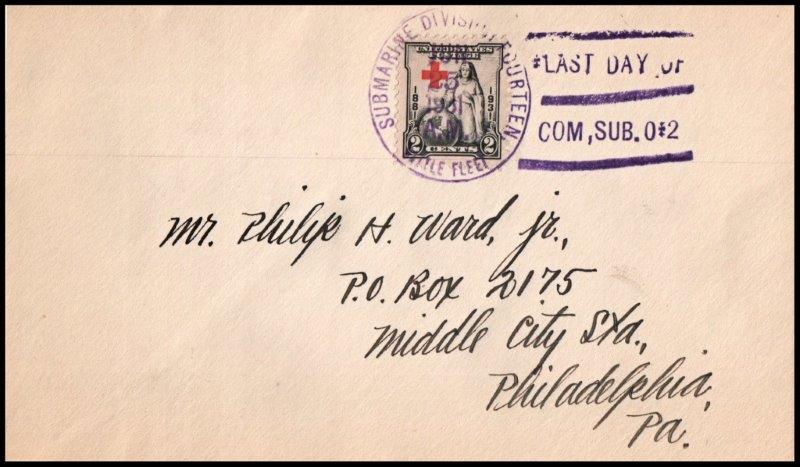 SUBMARINE DIVISION FOURTEEN
BATTLE FLEET
25
1931
A.M.
UNITED STATES
POSTAGE
1881
1931
2 CENTS 2
LAST DAY OF
COM, SUB. O‡2
Mr. Philip H. Ward, Jr.,
P.O. Box 2175
Middle City Sta.,
Philadelphia,
Pa.